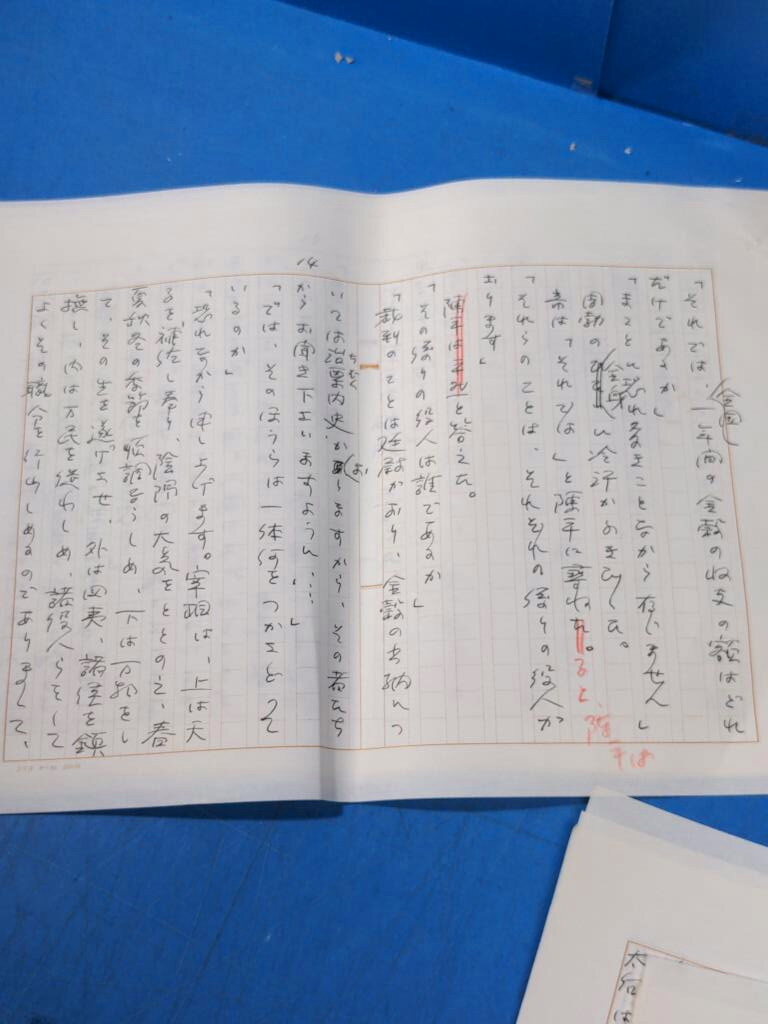 「それでは、一年間の全国金穀の収支の額はどれ
だけであるか」
「まことに恐れ多きことながら存じません」
周勃の全身に冷汗がふき出した。
帝は「それでは」と陳平に尋ねると、陳平は
「それらのことは、それぞれの係りの役人が
おります」
陳平は平然と答えた。
「その係りの役人は誰であるか」
「裁判のことは廷尉がおり、金穀の出納につ
いては治粟内史がおりますから、その者たち
からお聞き下さいますように……」
「では、そのほうらは一体何をつかさどって
いるのか」
「恐れながら申し上げます。宰相は、上は天
子を補佐し奉り、陰陽の大気をととのえ、春
夏秋冬の季節を順調ならしめ、下は万物をし
て、その生を遂げさせ、外は四夷、諸侯を鎮
撫し、内は万民を従わしめ、諸役人らをして
よくその職分を行わしめるのでありまして、
14
太后は